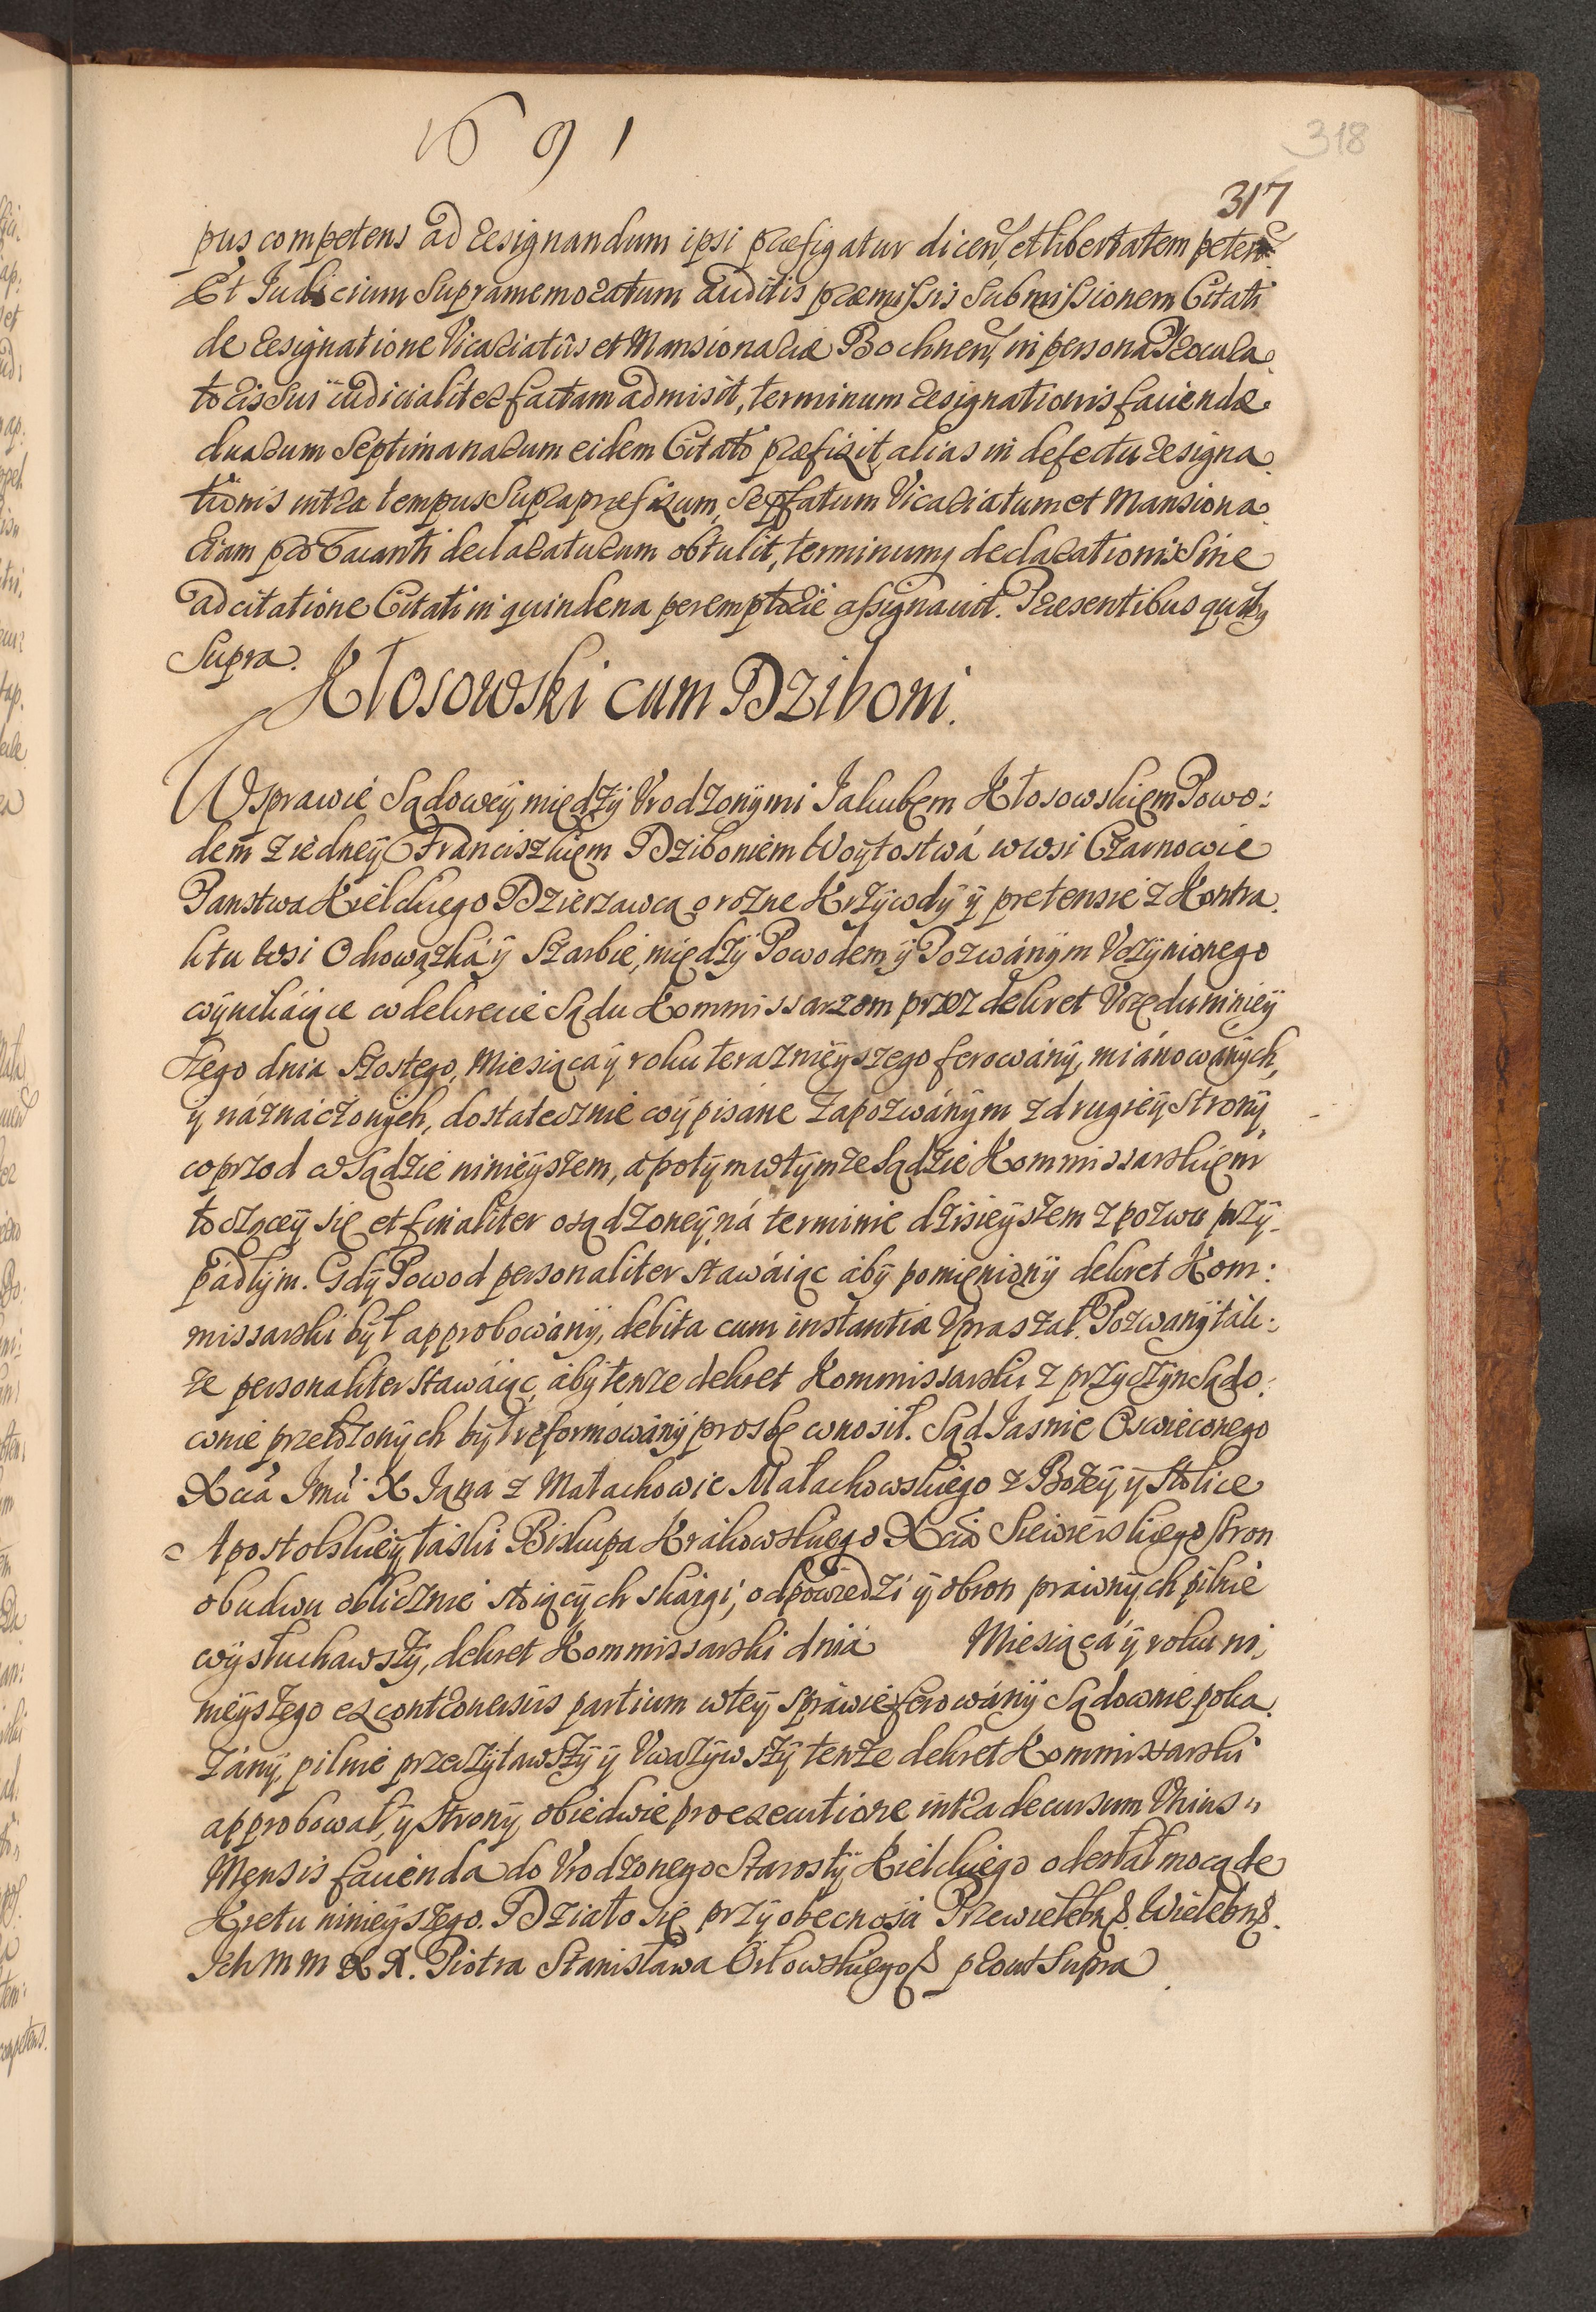 1691
318
317
pus competens ad resignandum ipsi præfigatur dicen, et libertatem peten.
Et Iudicium Supramemoratum auditis præmissis Submissionem Citati
de resignatione Vicariatus et Mansionariæ Bochnen, in persona Procura
toris Sui iudicialiter factam admisit, terminum resignationis faciendæ
duarum Septimanarum eidem Citato præfixit, alias in defectu resigna
tionis intra tempus Supra præfixum, Sæpefatum Vicariatum et Mansiona
riam pro Vacanti declaraturum obtulit, terminumq declarationis Sine
adcitatione Citati in quindena peremptorie assignauit. Præsentibus quibq
Supra.
Kłosowski cum Dziboni.
W sprawie Sądowey między Vrodzonymi Jakubem Kłosowskiem Powo:
dem z iedney Franciszkiem Dziboniem Woytostwá w wsi Czarnowie
Panstwa Kielckiego Dzierzawcą o rozne Krzywdy y pretensie z Kontra
ktu wsi Odrowązká y Szarbie, między Powodem y Pozwánym Vczynionego
wynikáiące w dekrecie Sądu Kommissarzom przez dekret Vrzędu niniey
szego dnia Szostego, Miesiąca y roku teraznieyszego ferowány, miánowánych,
y náznáczonych, dostatecznie wypisáne Zapozwánym z drugiey Strony,
wprzod w Sądzie ninieyszem, a potym w tymze Sądzie Kommissarskiem
toczącey się et finaliter osądzoney, ná terminie dzisieyszem z pozwu przy
pádłym. Gdy Powod personaliter stawáiąc aby pomieniony dekret Kom:
missarski był approbowány, debita cum instantia Vpraszał. Pozwany tak:
ze personaliter stawáiąc, aby tenze dekret Kommissarski z przyczyn Sądo:
wnie przełozonych był reformowány prosbę wnosił. Sąd Jasnie Oswieconego
Xcia Jmci X Jana z Małachowic Małachowskiego z Bozey y Stolice
Apostolskiey łaski Biskupa Krakowskiego Xcia Siewierskiego Stron
obudwu oblicznie stoiących skargi, odpowiedzi y obron prawnych pilnie
wysłuchawszy, dekret Kommissarski dnia Miesiąca y roku ni,
nieyszego ex controuersiis partium w tey spráwie ferowány Sądownie poka
zány, pilnie przeczytawszy y Vwazywszy tenze dekret Kommissarski
approbował, y Strony obiedwie pro executione intra decursum Vnius
Mensis facienda do Vrodzonego Starosty Kielckiego odesłał mocą de
Kretu ninieyszego. Działo się przy obecnosci Przewielebn. Wielebn.
Ich MM X X. Piotra Stanisława Orłowskiego prout Supra